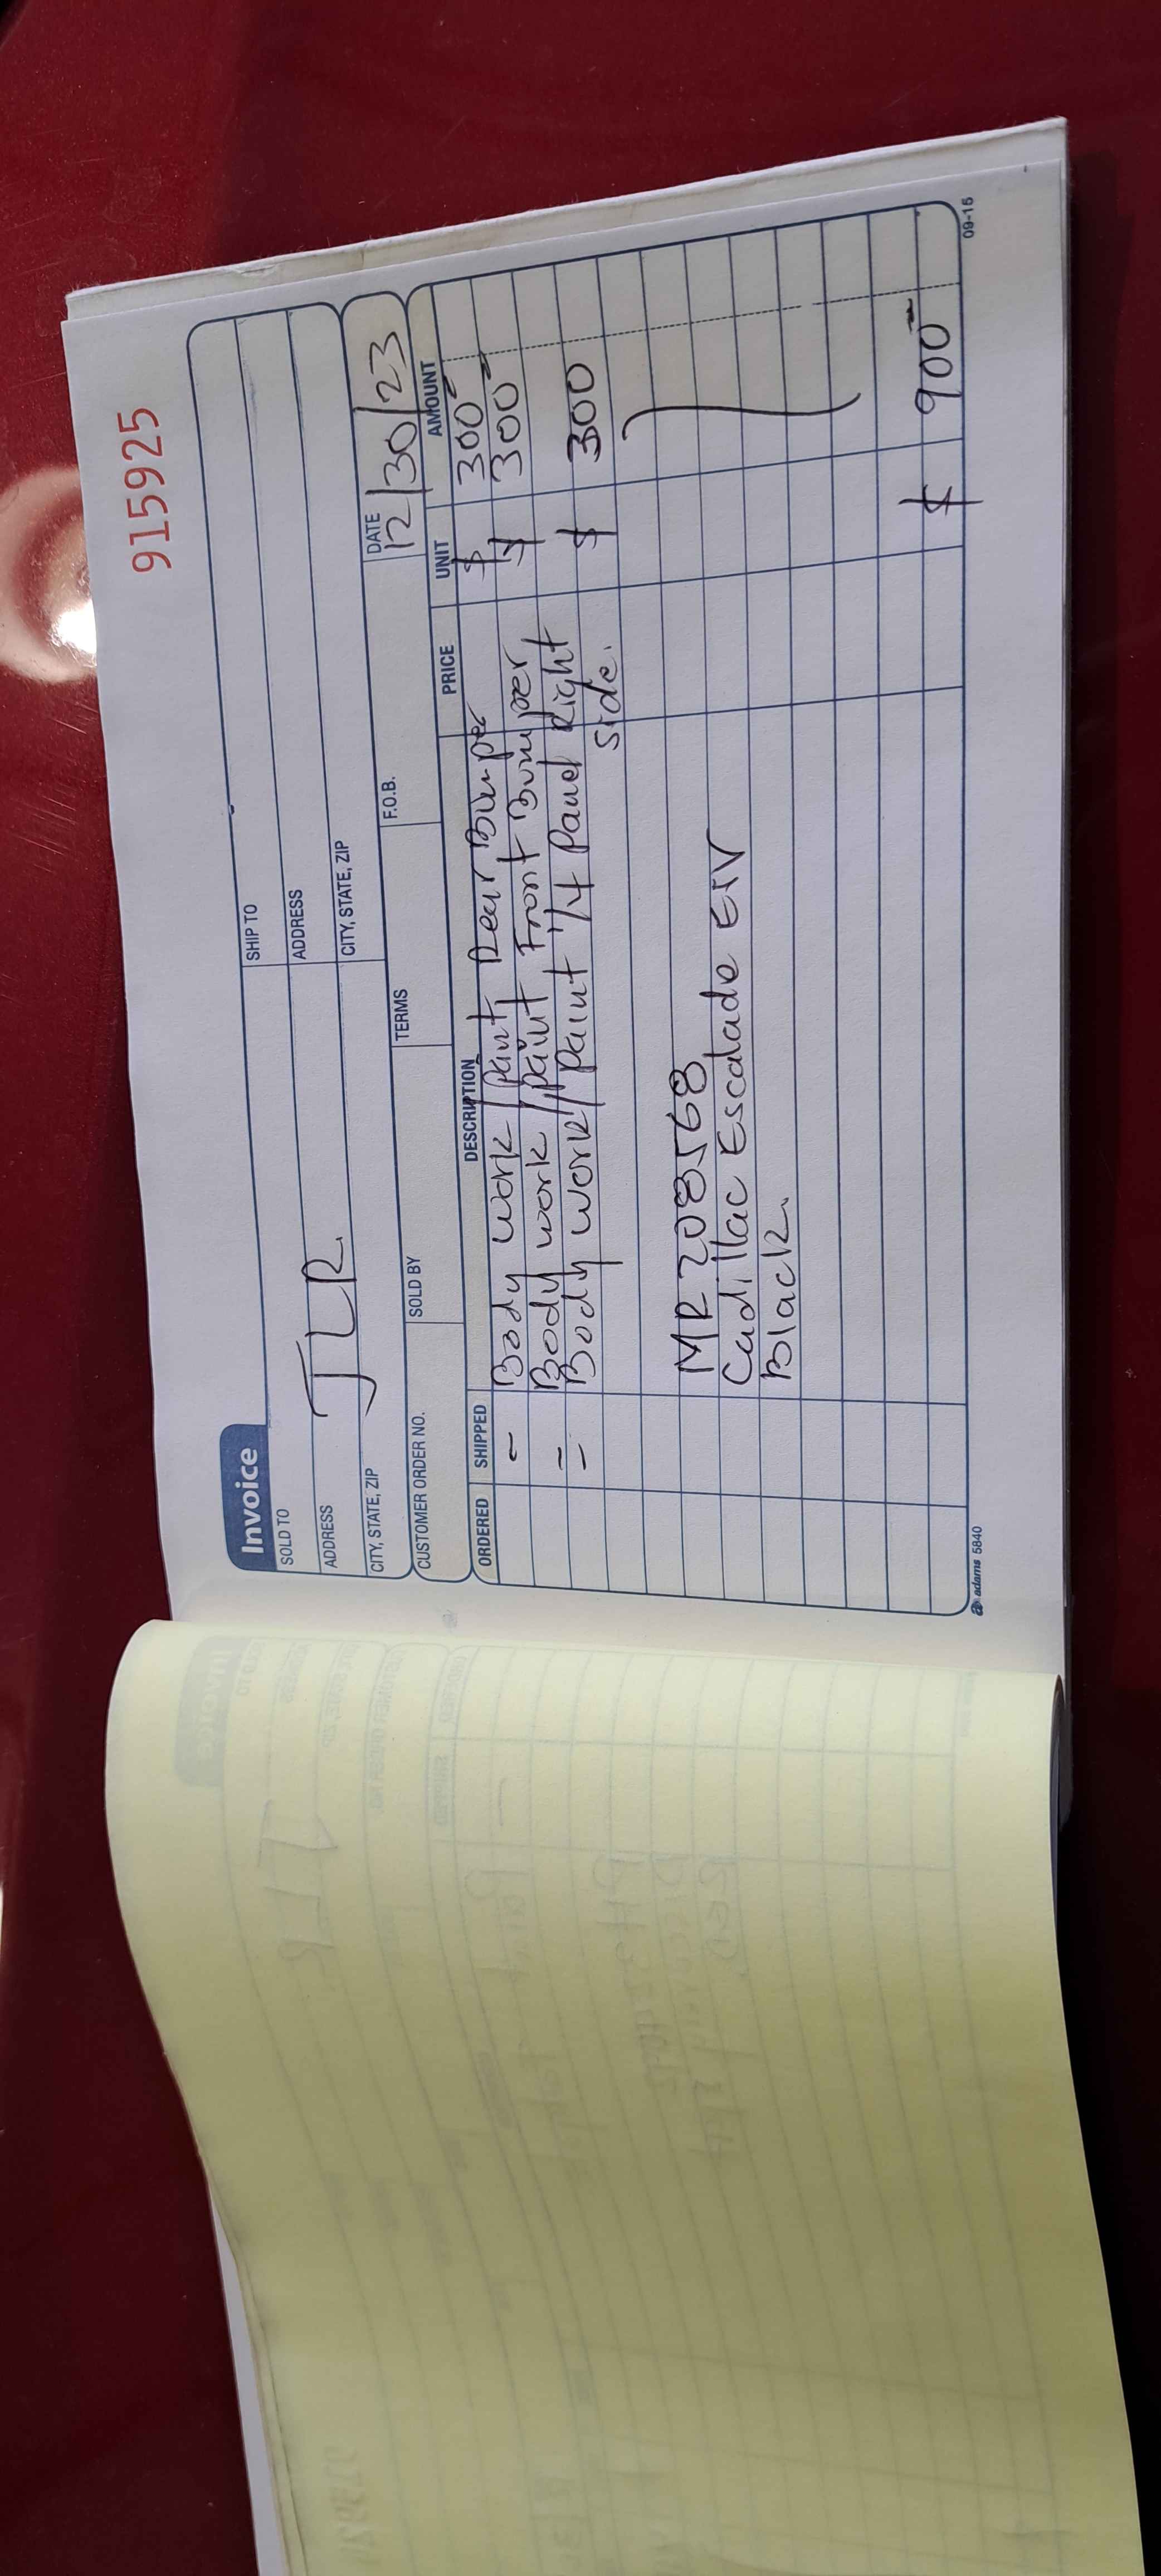 915925
Invoice
SOLD TO
SHIP TO
ADDRESS
JLR
ADDRESS
CITY, STATE, ZIP
CITY, STATE, ZIP
CUSTOMER ORDER NO.
SOLD BY
TERMS
F.O.B.
DATE
12/30/23
ORDERED SHIPPED DESCRIPTION PRICE UNIT AMOUNT
- Body work/paint Rear Bumper $ 300
- Body work/paint Front Bumper $ 300
- Body work/paint 1/4 Panel Right $ 300
side.
MR208568
Cadillac Escalade
Black.
$ 900
adams 5840
09-15